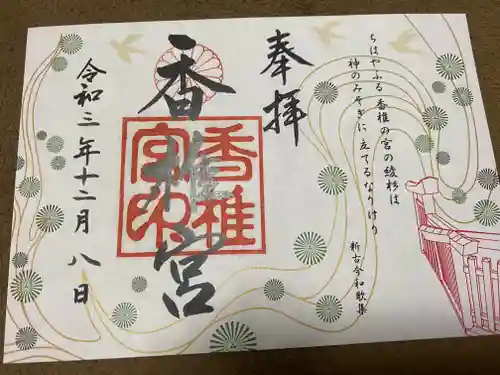 奉拝
ちはやふる 香椎の宮の綾杉は
神のみそぎに 立てるなりけり
新古今和歌集
香椎宮
香椎宮印
令和三年十二月八日